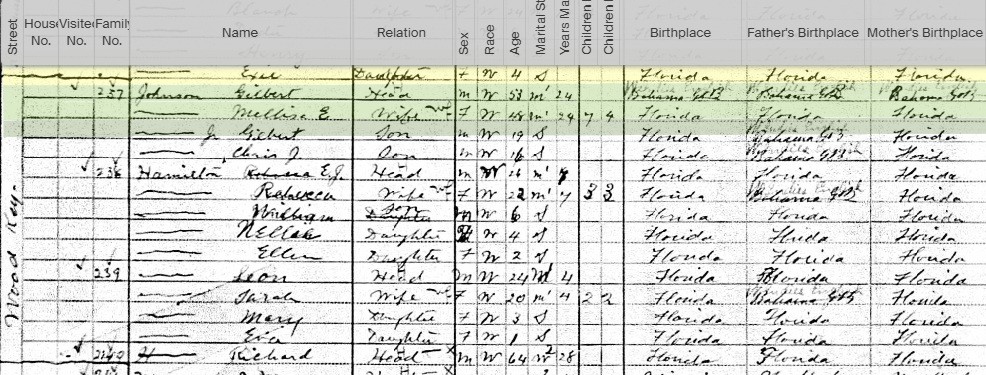 Street House No. Visited No. Family No. Name Relation Sex Race Age Marital St Years Ma Children Children Birthplace Father's Birthplace Mother's Birthplace
Daughter F W 4 S Florida Florida Florida
237 Johnson Gilbert Head m W 53 m' 24 Bahama Bahama Bahama
Mellisa E Wife F W 48 m' 24 7 4 Florida Florida Florida
J. Gilbert Son m W 19 S Florida Bahama Florida
Chris J. Son m W 16 S Florida Bahama Florida
238 Hamilton E.J. Head m W 26 m' 7 Florida Florida Florida
Rebecca Wife F W 22 m' 7 3 3 Florida Bahama Florida
William Son m W 6 S Florida Florida Florida
Nellie Daughter F W 4 S Florida Florida Florida
Ellen Daughter F W 2 S Florida Florida Florida
239 Leon Head m W 24 m' 4 Florida Florida Florida
Sarah Wife F W 20 m' 4 2 2 Florida Bahama Florida
Mary Daughter F W 3 S Florida Florida Florida
Eva Daughter F W 1 S Florida Florida Florida
240 H Richard Head m W 64 28 Florida Florida Florida
Wood Key